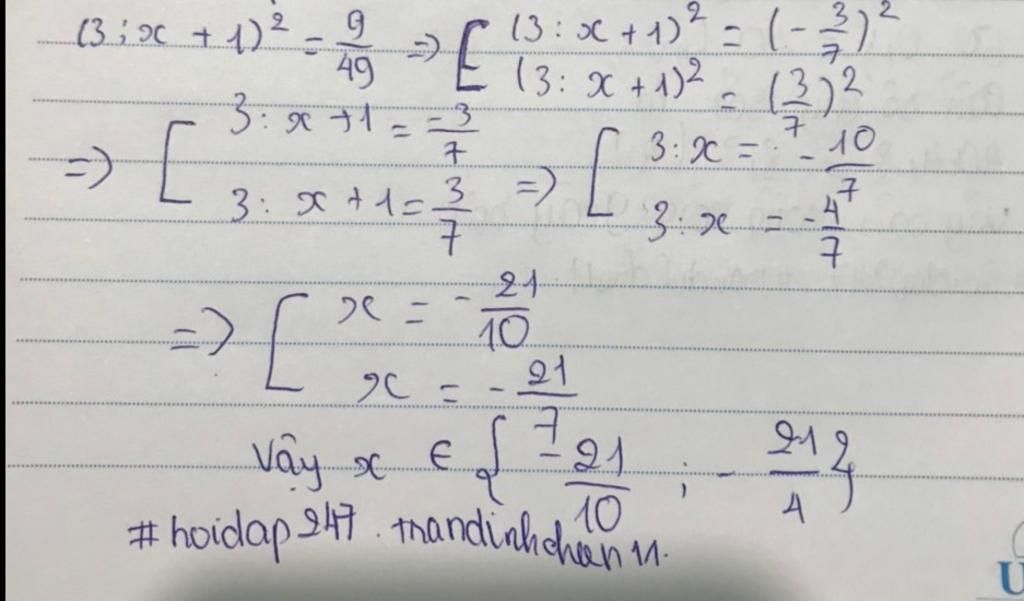 (3 : x + 1)² = 9/49 => [ (3 : x + 1)² = (- 3/7)²
(3 : x + 1)² = (3/7)²
=> [ 3 : x + 1 = -3/7 => [ 3 : x = - 10/7
3 : x + 1 = 3/7 3 : x = - 4/7
=> [ x = - 21/10
x = - 21/7
Vậy x ∈ { - 21/10 ; - 21/4 }
#hoidap247. trandinhchan11.
U